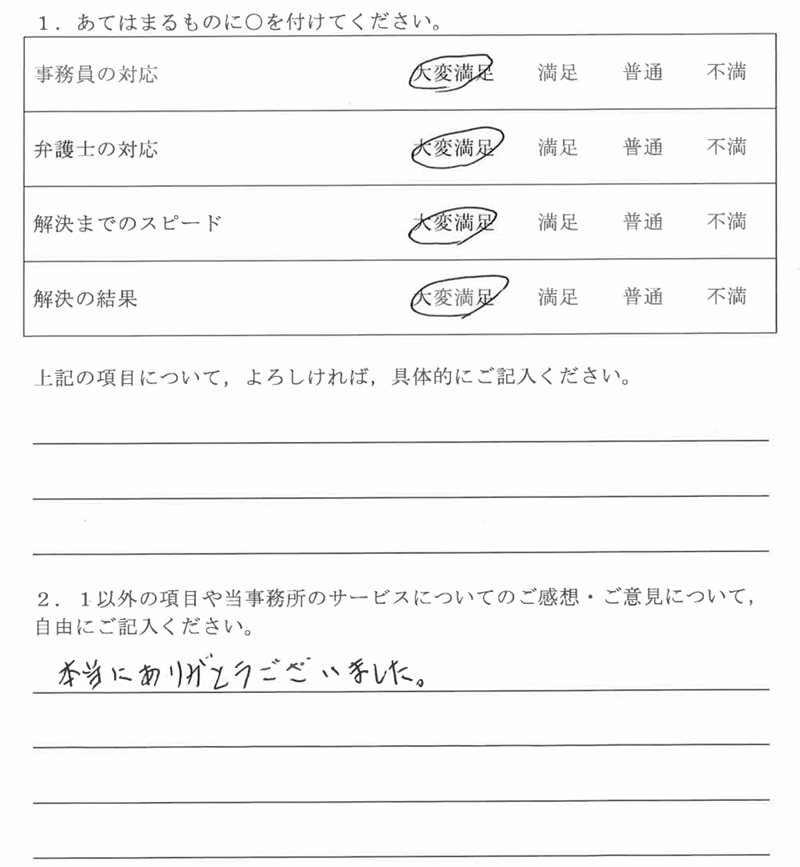 １．あてはまるものに○を付けてください。
事務員の対応 大変満足 満足 普通 不満
弁護士の対応 大変満足 満足 普通 不満
解決までのスピード 大変満足 満足 普通 不満
解決の結果 大変満足 満足 普通 不満
上記の項目について，よろしければ，具体的にご記入ください。
２．１以外の項目や当事務所のサービスについてのご感想・ご意見について，
自由にご記入ください。
本当にありがとうございました。